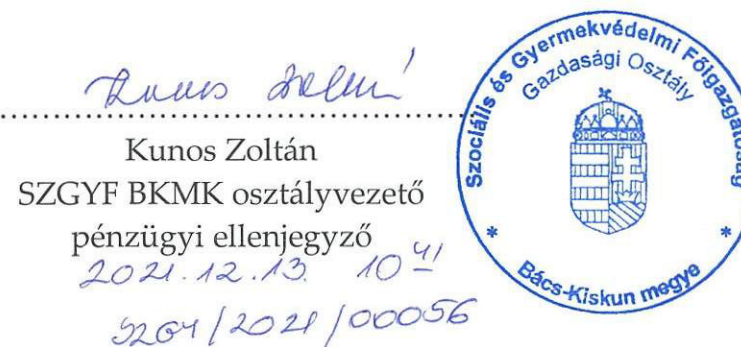 Kunos Zoltán
Kunos Zoltán
SZGYF BKMK osztályvezető
pénzügyi ellenjegyző
2021.12.13. 10 41
SZGY/2021/00056
Szociális és Gyermekvédelmi Főigazgatóság
Gazdasági Osztály
* Bács-Kiskun megye *